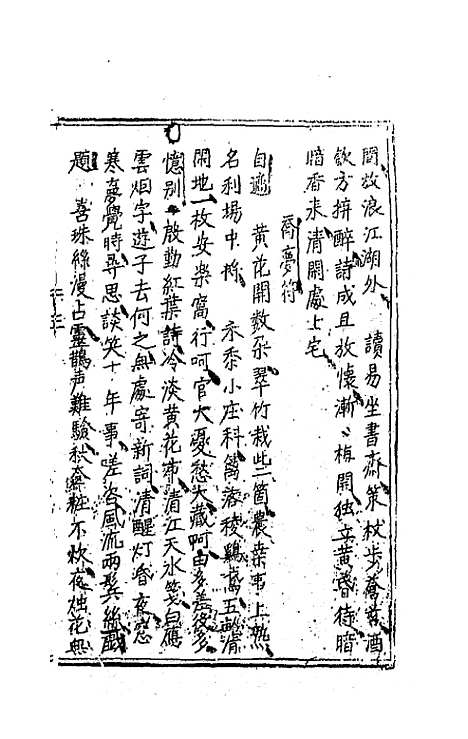 間放浪江湖外　讀易坐書齋策杖步蒼苔酒
飲方拚醉詩成且放懷漸〻梅開獨立黃昏待暗
暗香来清閑處士宅
　　　喬夢符
自適　黃花開数朶翠竹栽些二箇農桒事上熟
名利場中挫　禾黍小庄科籬落稜鷄鵞五畝清
閑地一枚安楽窩行呵官大憂愁大藏呵由多差役多
憶別　殷勤紅葉詩冷淡黃花市清江天水箋白鴈
雲烟字遊子去何之無處寄新詞清醒灯昏夜窓
寒夢覺時尋思談笑十年事嗟咨風流两鬂絲
題　喜珠絲漫占靈鵲声難驗秋奩粧不炊夜烛花無